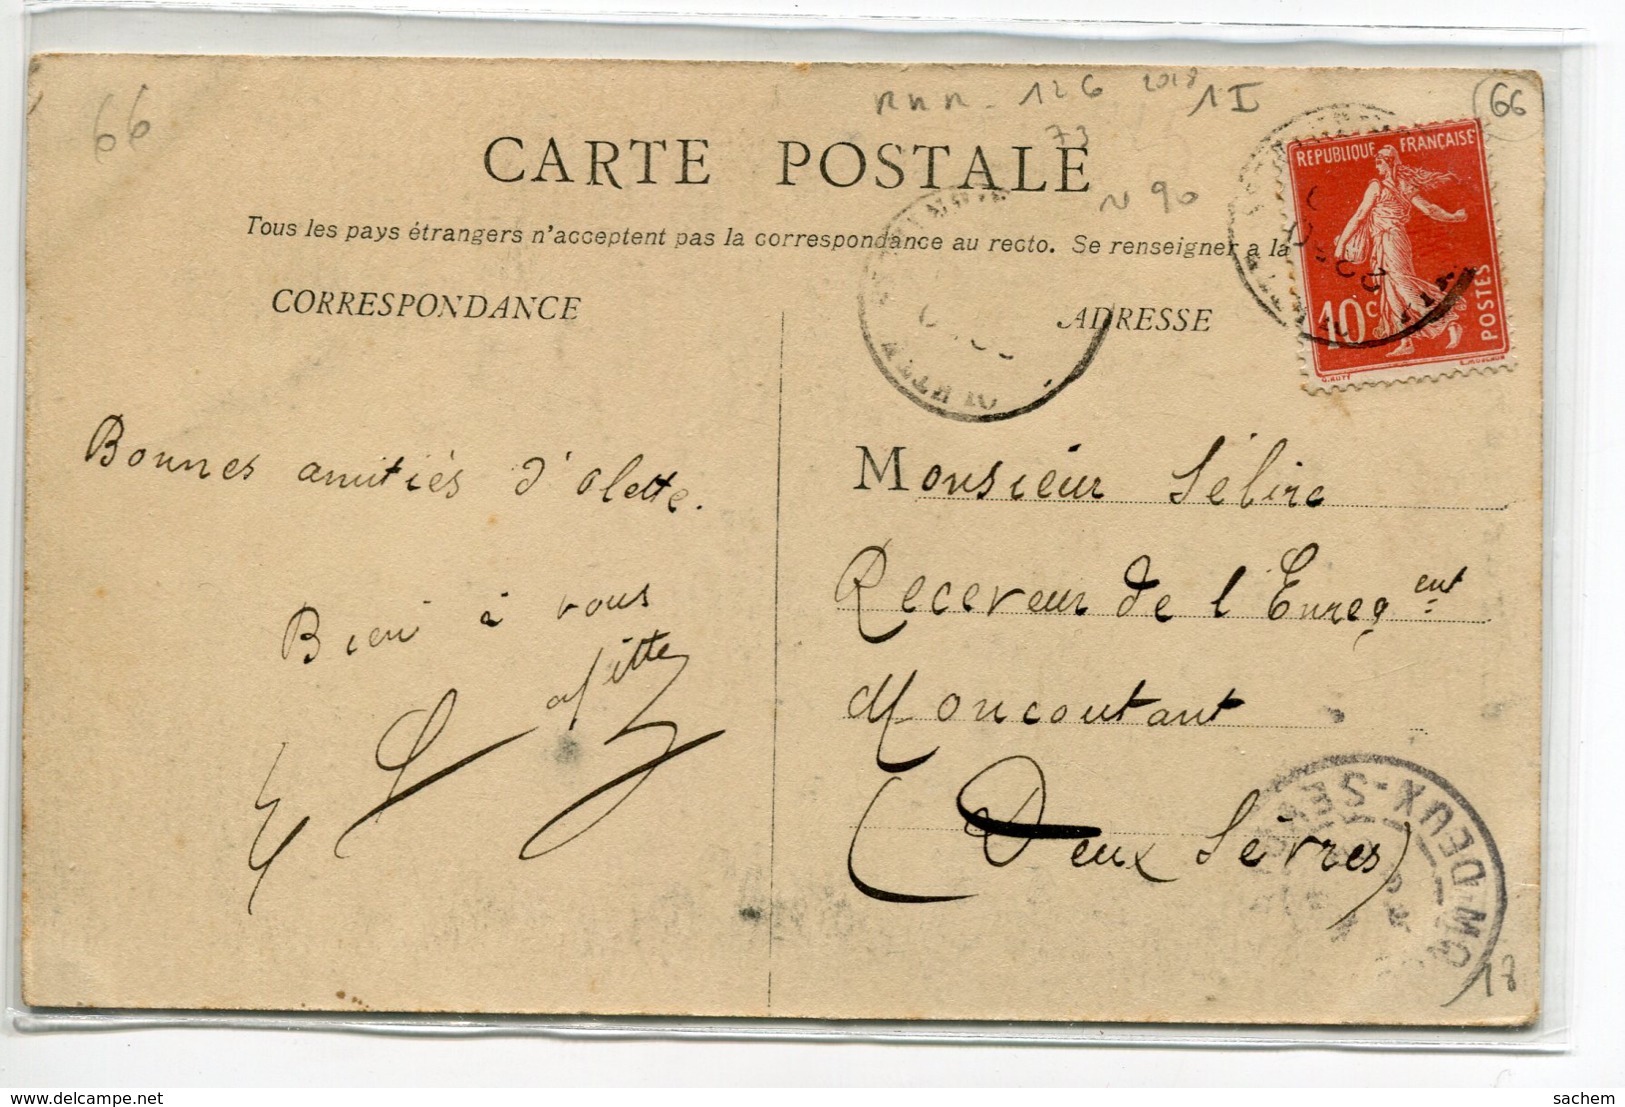 66
RMM - 126 2018 1I
73
66
CARTE POSTALE
N 90
Tous les pays étrangers n'acceptent pas la correspondance au recto. Se renseigner a la
CORRESPONDANCE
ADRESSE
REPUBLIQUE FRANÇAISE
10 c
POSTES
Bonnes amitiés d'Olette.
Bien à vous
E Lafitte
Monsieur Sébire
Receveur de l'Enregent
Moncoutant
(Deux Sèvres)
DEUX-SEVRES
18
delcampe.net
sachem